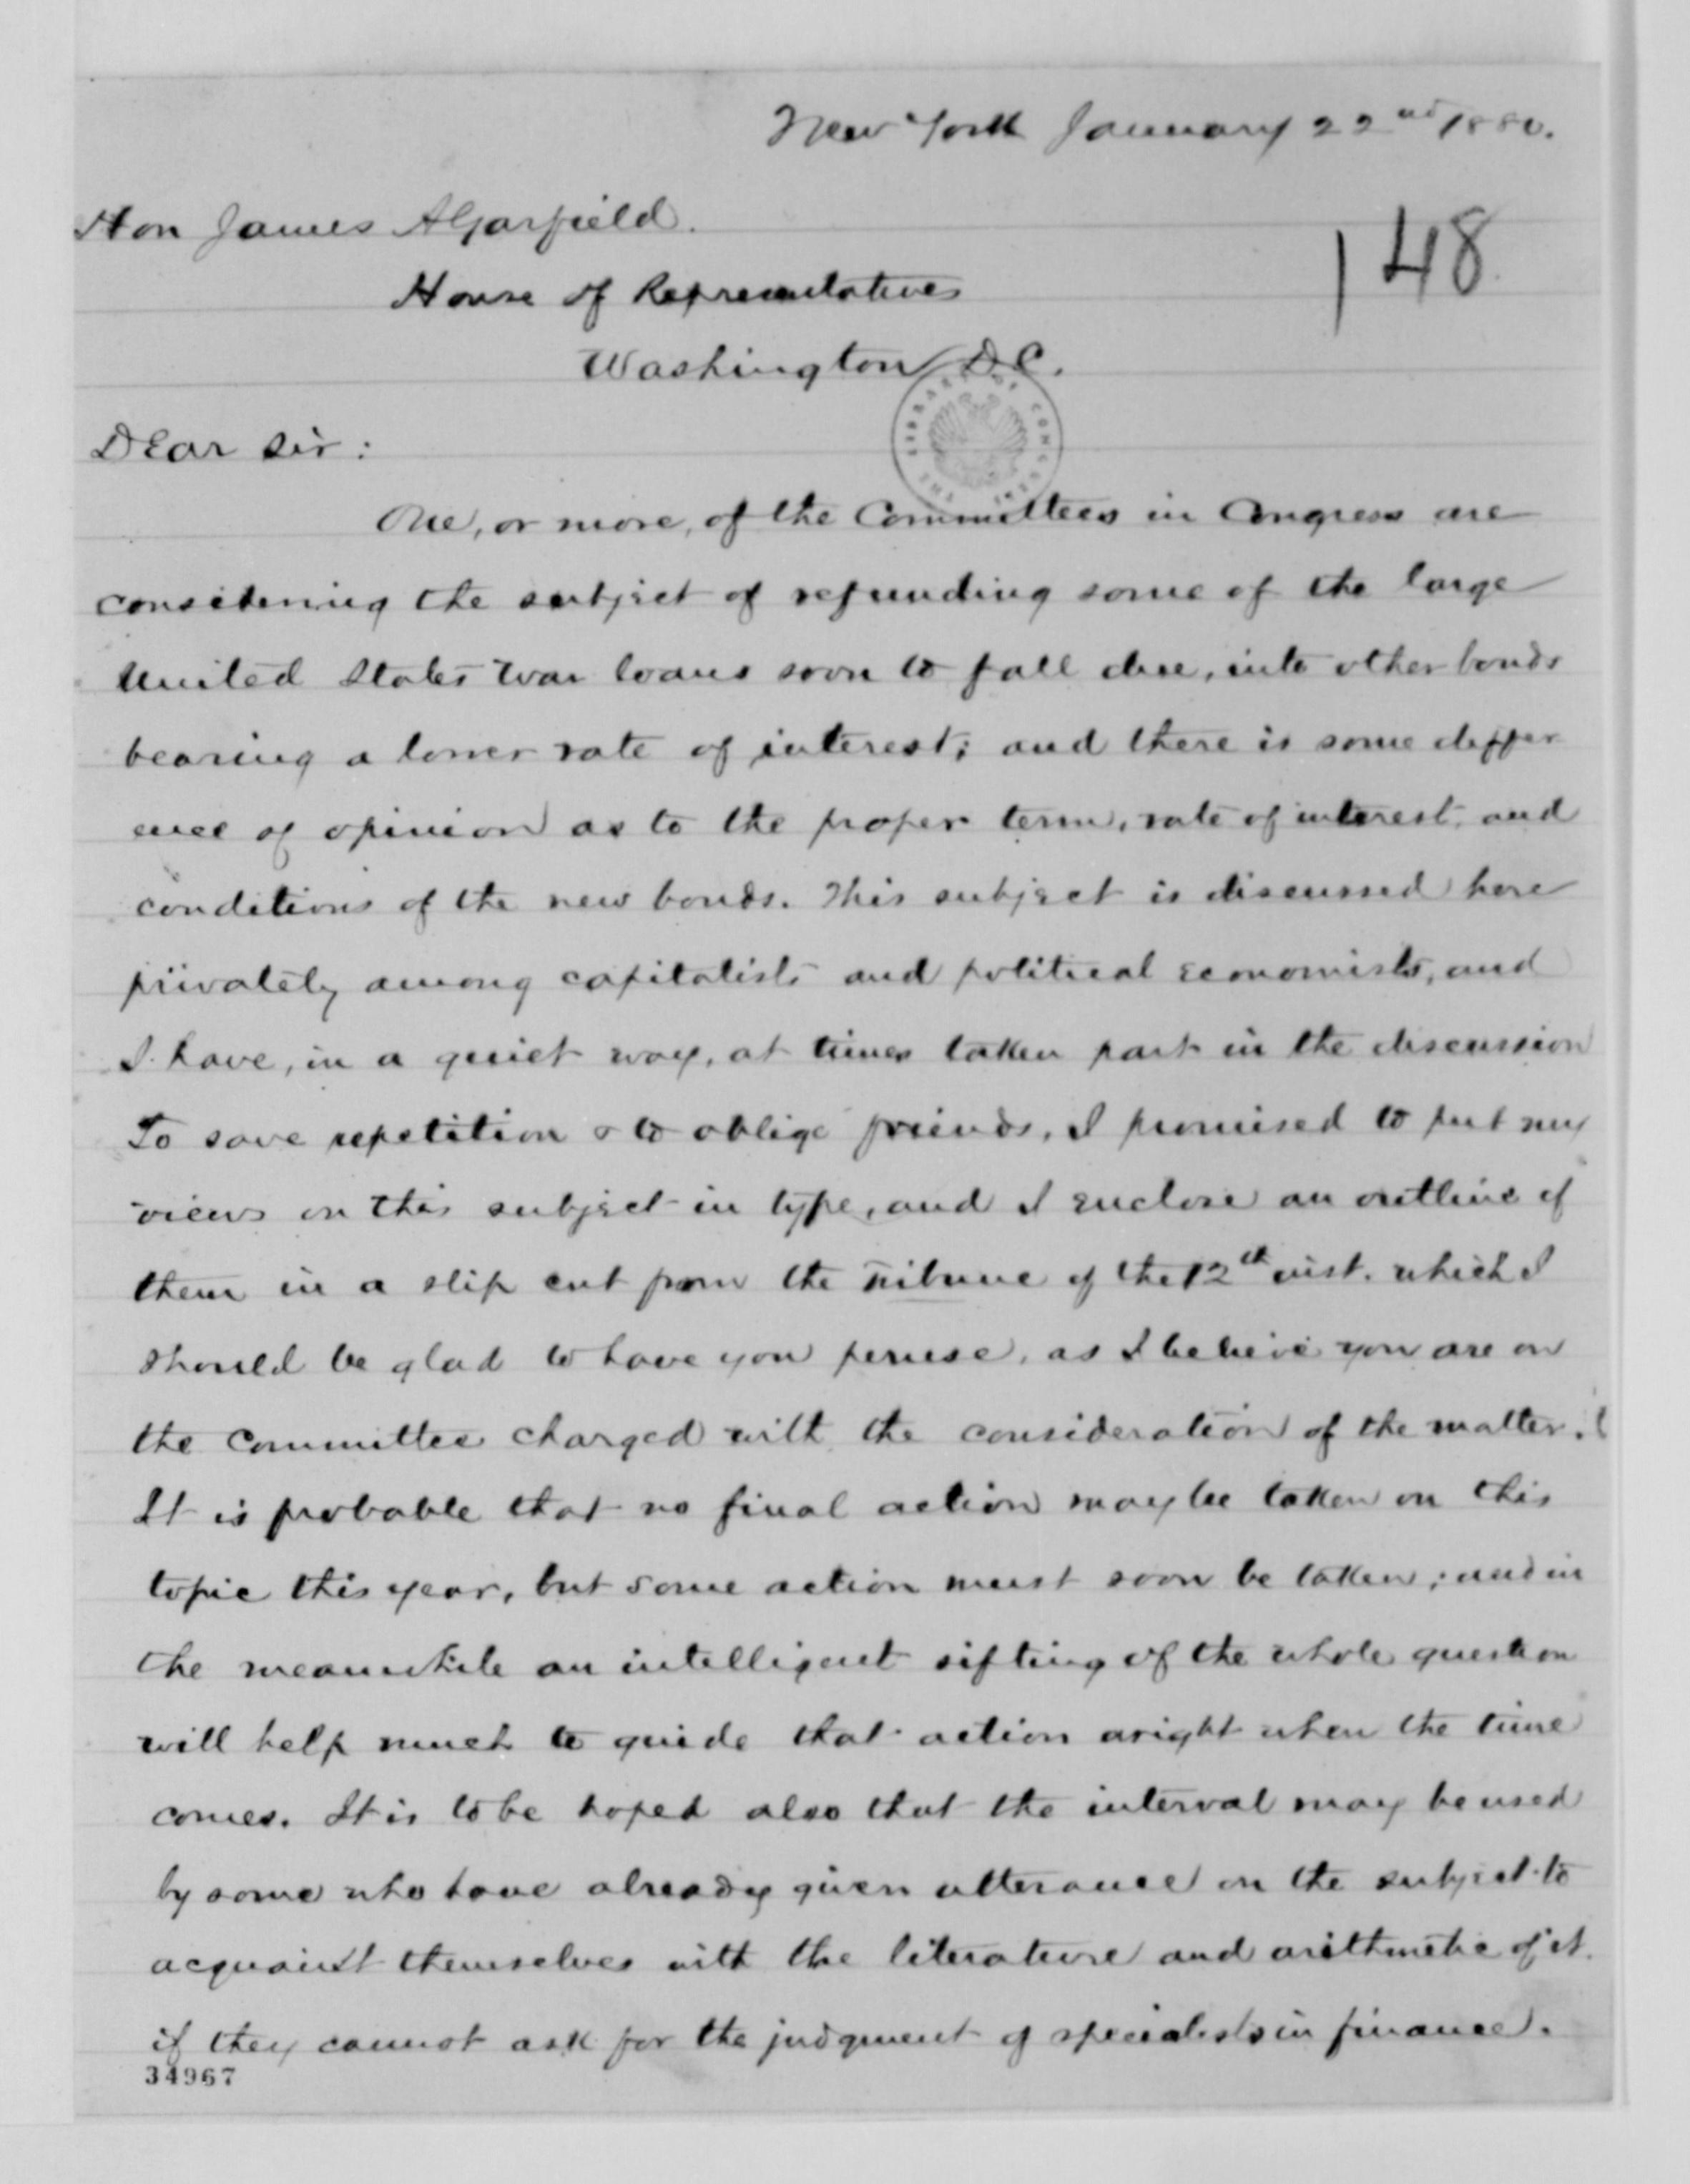 New York January 22nd 1880.
Hon James A Garfield.
148
House of Representatives
Washington D.C.
THE LIBRARY OF CONGRESS
Dear Sir:
One, or more, of the Committees in Congress are
considering the subject of refunding some of the large
United States War loans soon to fall due, into other bonds
bearing a lower rate of interest; and there is some differ
ence of opinion as to the proper term, rate of interest, and
conditions of the new bonds. This subject is discussed here
privately among capitalists and political economists, and
I have, in a quiet way, at times taken part in the discussion
To save repetition & to oblige friends, I promised to put my
views on this subject in type, and I enclose an outline of
them in a slip cut from the Tribune of the 12th inst. which I
should be glad to have you peruse, as I believe you are on
the Committee charged with the consideration of the matter.
It is probable that no final action may be taken on this
topic this year, but some action must soon be taken; and in
the meanwhile an intelligent sifting of the whole question
will help much to guide that action aright when the time
comes. It is to be hoped also that the interval may be used
by some who have already given utterance on the subject to
acquaint themselves with the literature and arithmetic of it.
if they cannot ask for the judgment of specialists in finance.
34967